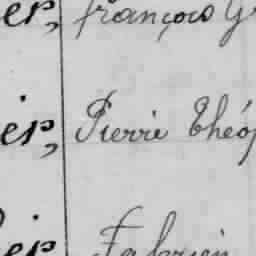 er, françois G
ier, Pierre Théop
ier Fabrien